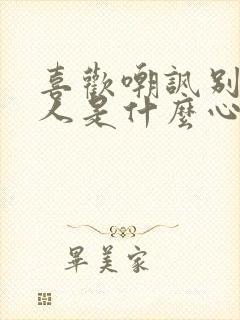 喜歡嘲諷別
人是什麼心
畢美家